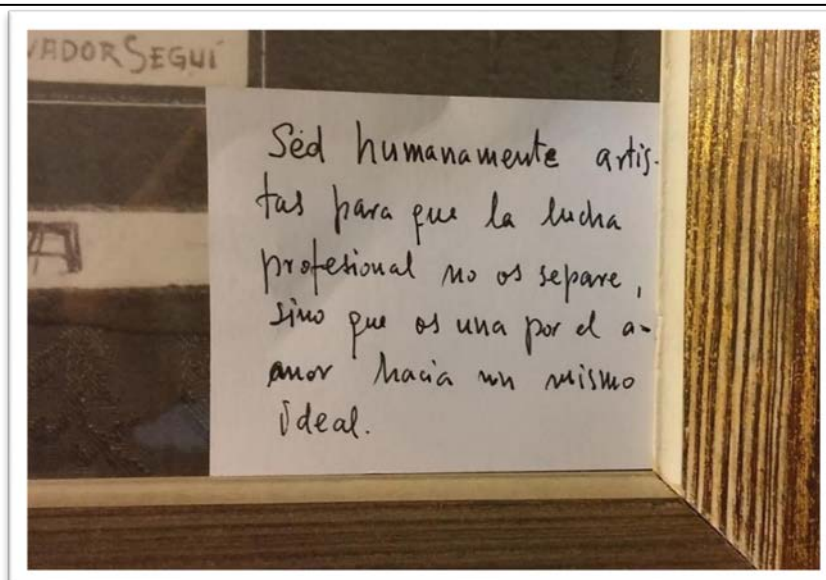 VADOR SEGUÍ
A
Séd humanamente artis-
tas para que la lucha
profesional no os separe,
sino que os una por el a-
amor hacia un mismo
ideal.